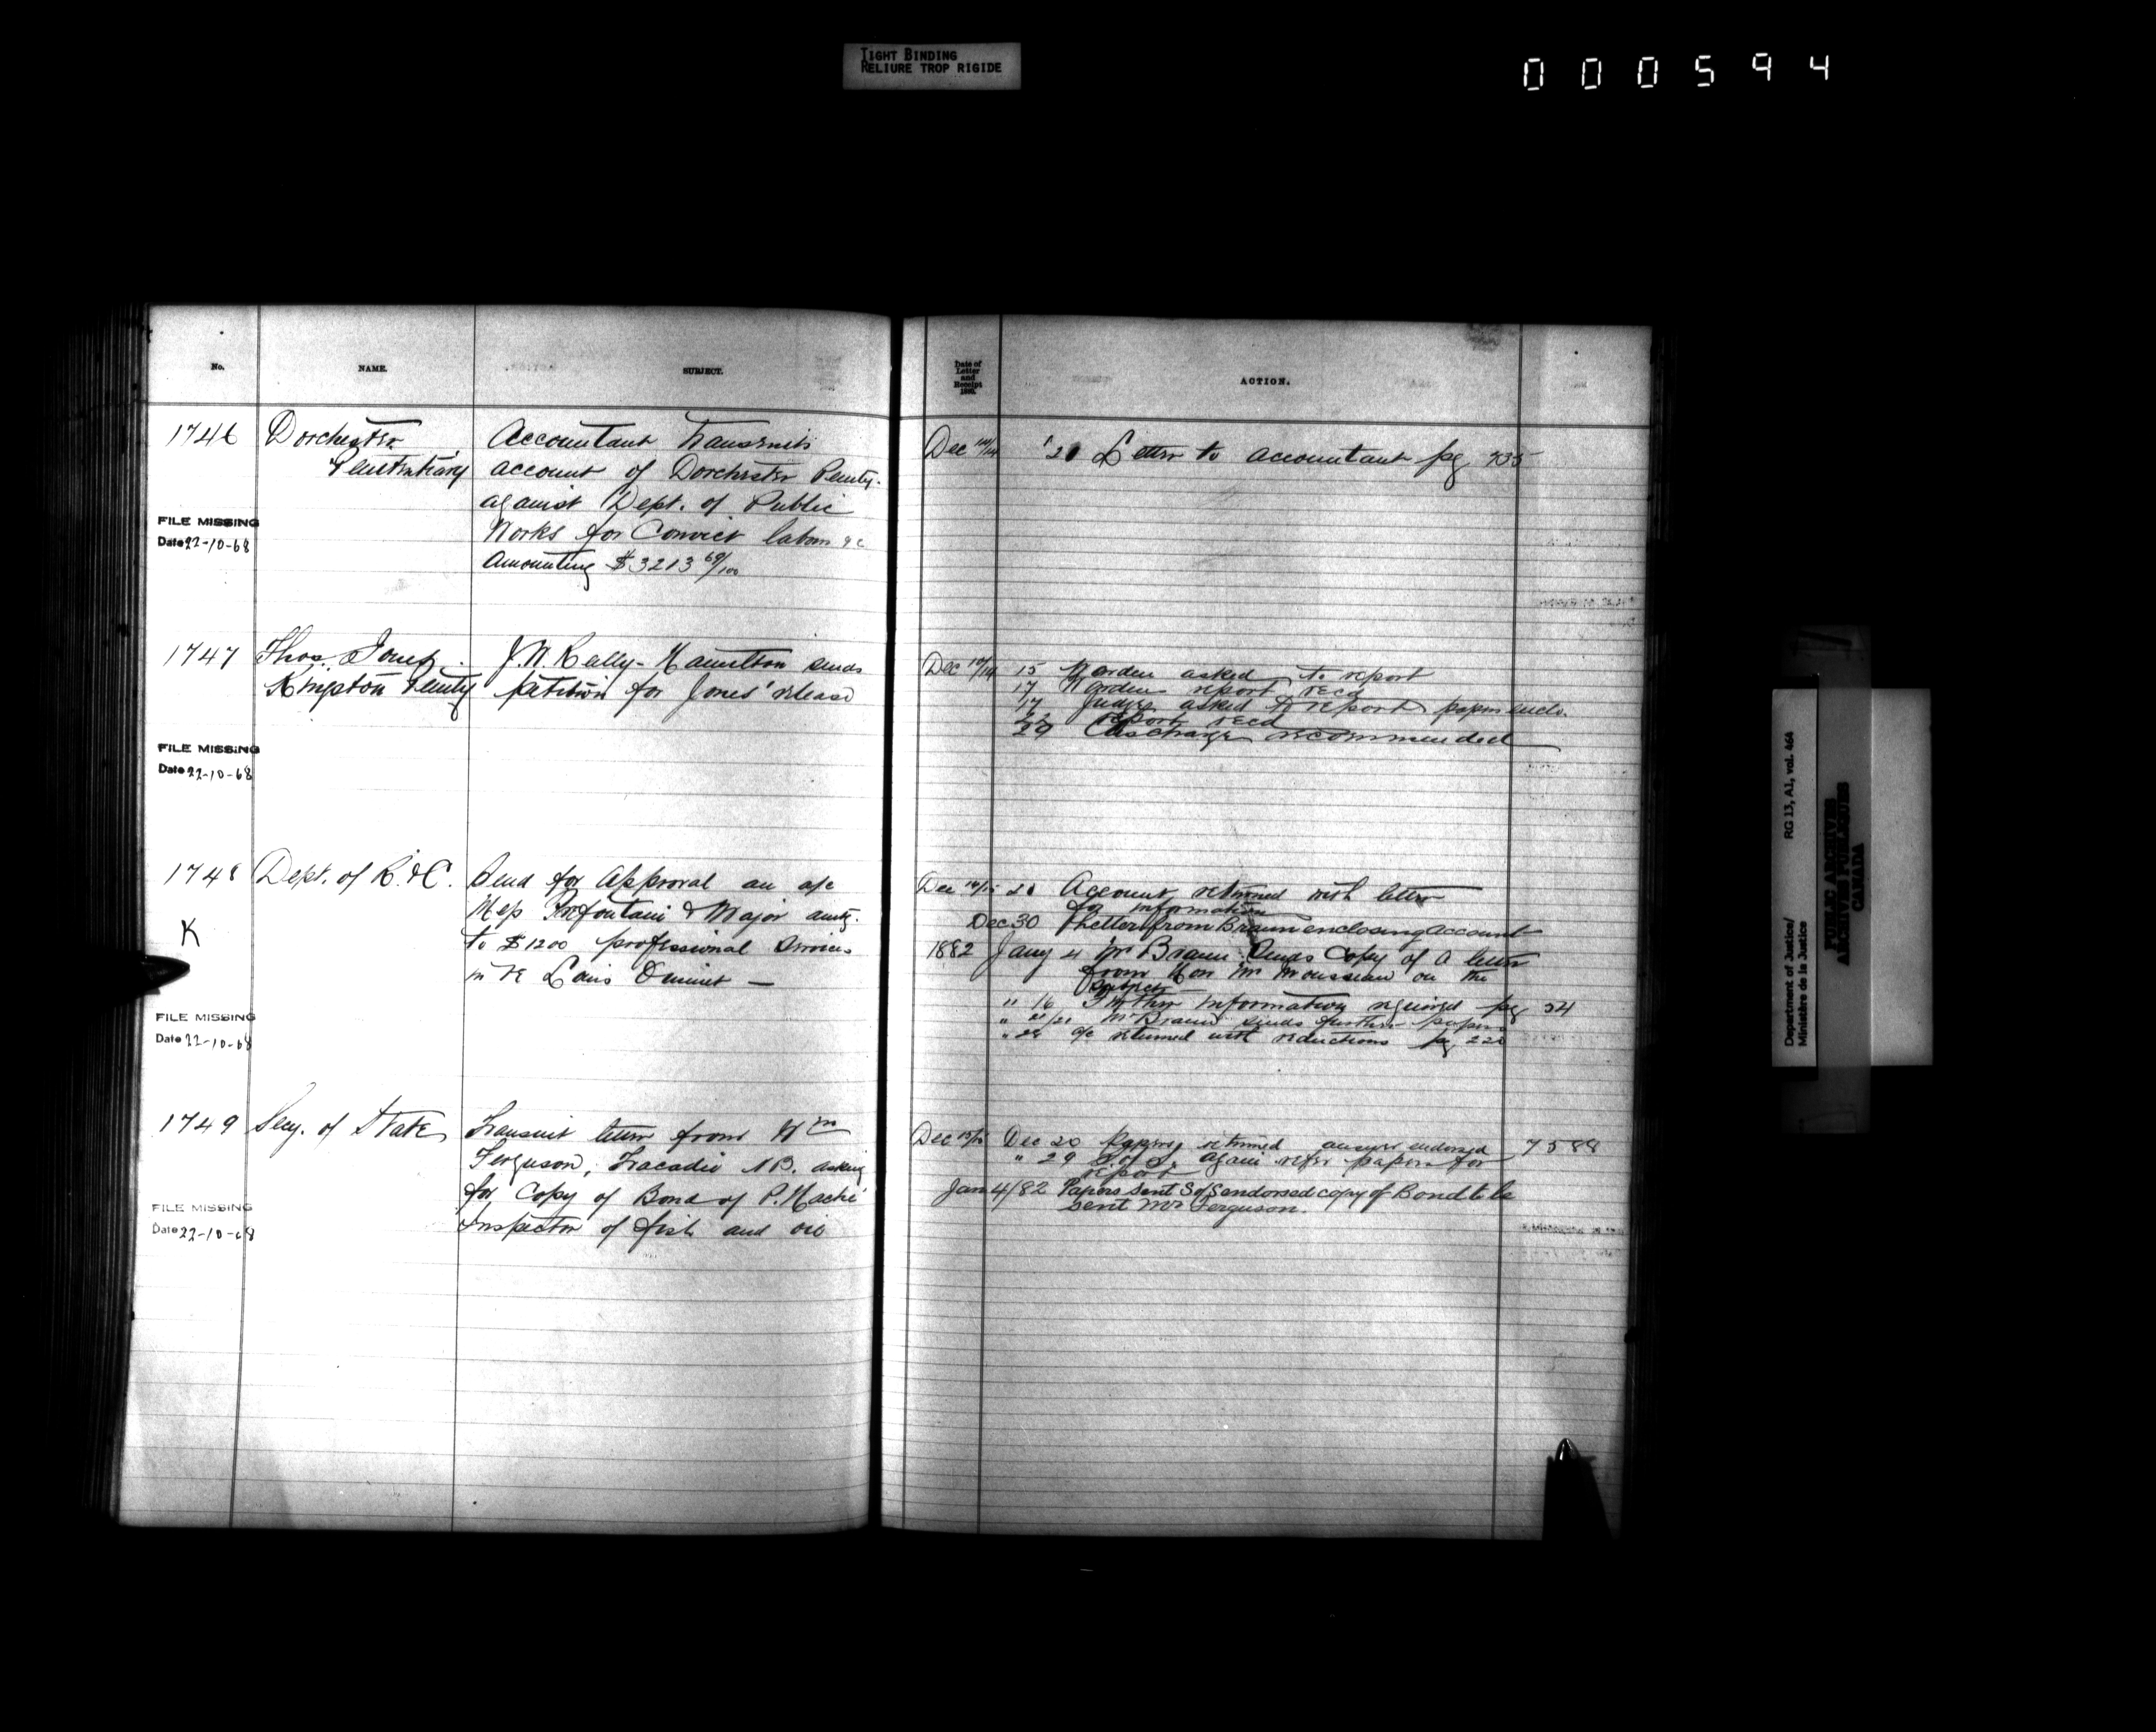 TIGHT BINDING
RELIURE TROP RIGIDE
000594
No.
NAME.
SUBJECT.
Date of
Letter
and
Receipt
ACTION.
1746 Dorchester Accountant transmits
Penitentiary account of Dorchester Penity.
against Dept. of Public
Works for Convict labour &c
Amounting $3213 69/100
FILE MISSING
Date 22-10-68
Dec 14/14 '20 Letter to accountant pg 735
1747 Thos. Jones J.W. Kelly - Hamilton sends
Kingston Penity petition for Jones' release
FILE MISSING
Date 22-10-68
Dec 14 15 Warden asked to report
17 Warden report recd
17 Judge asked to report papers enclo.
22 report recd
29 Discharge recommended
1748 Dept. of R. & C. Send for Approval an a/c
Mess Prefontaine & Major amtg.
to $1200 professional Services
in re Louis —
K
FILE MISSING
Date 22-10-68
Dec 14/15 20 Account returned with letter
for information
Dec 30 Letter from Braun enclosing account
1882 Jany 4 Mr Braun Sends Copy of a letter
from Hon Mr Mousseau on the
subject
" 16 Further information required pg 54
" 21/21 Mr Braun sends further papers
" 28 a/c returned with reductions pg 220
1749 Secy. of State Transmit letter from Wm
Ferguson, Tracadie NB. asking
for Copy of Bond of P. Haché
Inspector of fish and oil
FILE MISSING
Date 22-10-68
Dec 15/15 Dec 20 Papers returned answer endorsed 7588
" 29 S of S. again refer papers for
report
Jan 4/82 Papers sent S of S endorsed copy of Bond to be
sent Mr Ferguson.
Department of Justice/ RG 13, A1, vol. 464
Ministère de la Justice
PUBLIC ARCHIVES
ARCHIVES PUBLIQUES
CANADA